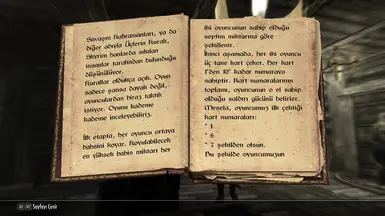 Savaşın Kahramanları, ya da
diğer adıyla Üçlerin Kuralı,
Skyrim hanlarda sıkılan
insanlar tarafından bulunduğu
düşünülüyor.
Kurallar oldukça açık. Oyun
sadece şansa dayalı değil,
oyunculardan biraz taktik
istiyor. Oyunu kademe
kademe inceleyebiliriz.
İlk etapta, her oyuncu ortaya
bahsini koyar. Koyulabilecek
en yüksek bahis miktarı her
iki oyuncunun sahip olduğu
septim miktarına göre
şekillenir.
İkinci aşamada, her iki oyuncu
üç tane kart çeker. Her kart
1'den 10' kadar numaraya
sahiptir. Kart numaralarının
toplamı, oyunun o el sahip
olduğu saldırı gücünü belirler.
Mesela, oyuncumuz ilk çektiği
kart numaraları:
* 1
* 6
* 7 şekilden olsun.
Bu şekilde oyuncumuzun
Sayfayı Çevir